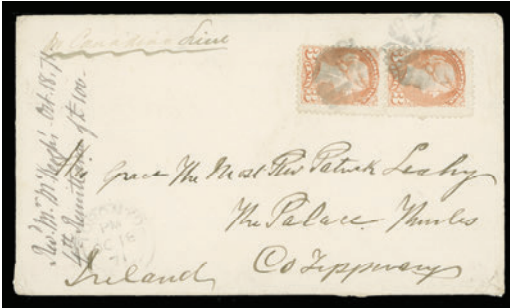 pr Canadian Line
Revd Mr McKeogh's Oct. 18, 71
4th Remittance of £100.
His Grace The Most Rev Patrick Leahy
The Palace Thurles
Co Tipperary
Ireland
TORONTO
PM
OC 18
71